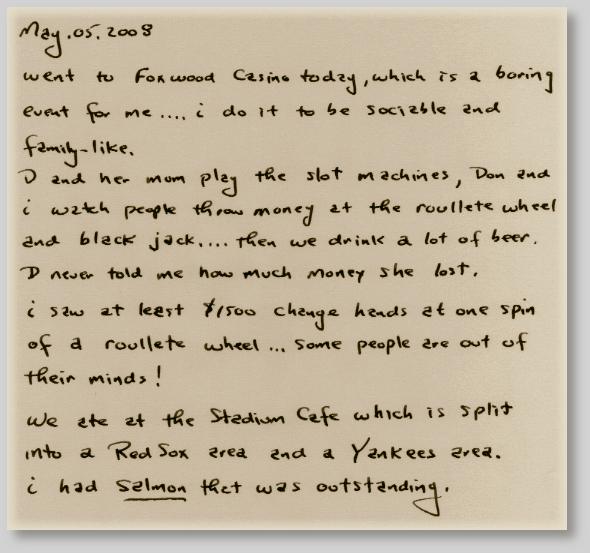 May.05.2008
went to Foxwood Casino today, which is a boring
event for me.... i do it to be sociable and
family-like.
D and her mom play the slot machines, Don and
i watch people throw money at the roullete wheel
and black jack.... then we drink a lot of beer.
D never told me how much money she lost.
i saw at least $1500 change hands at one spin
of a roullete wheel... some people are out of
their minds!
we ate at the Stadium Cafe which is split
into a Red Sox area and a Yankees area.
i had salmon that was outstanding.